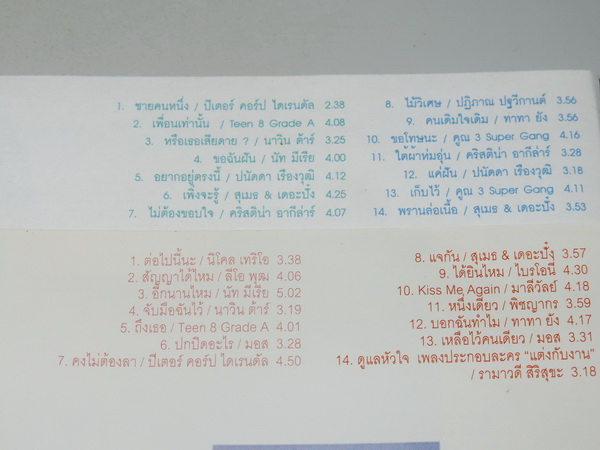 1. ชายคนหนึ่ง / ปีเตอร์ คอร์ป ไดเรนดัล 2.38
2. เพื่อนเท่านั้น / Teen 8 Grade A 4.08
3. หรือเธอเสียดาย ? / นาวิน ต้าร์ 3.25
4. ขอฉันฝัน / นัท มีเรีย 4.00
5. อยากอยู่ตรงนี้ / ปนัดดา เรืองวุฒิ 4.12
6. เพิ่งจะรู้ / สุเมธ & เดอะปั๋ง 4.25
7. ไม่ต้องขอบใจ / คริสติน่า อากีล่าร์ 4.07
8. ไม้วิเศษ / ปฏิภาณ ปฐวีกานต์ 3.56
9. คนเดิมใจเดิม / ทาทา ยัง 3.56
10. ขอโทษนะ / คูณ 3 Super Gang 4.16
11. ใต้ผ้าห่มอุ่น / คริสติน่า อากีล่าร์ 3.28
12. แค่ฝัน / ปนัดดา เรืองวุฒิ 3.18
13. เก็บไว้ / คูณ 3 Super Gang 4.11
14. พรานล่อเนื้อ / สุเมธ & เดอะปั๋ง 3.53
1. ต่อไปนี้นะ / นิโคล เทริโอ 3.38
2. สัญญาได้ไหม / ลีโอ พุฒ 4.06
3. อีกนานไหม / นัท มีเรีย 5.02
4. จับมือฉันไว้ / นาวิน ต้าร์ 3.19
5. ถึงเธอ / Teen 8 Grade A 4.01
6. ปกปิดอะไร / มอส 3.28
7. คงไม่ต้องลา / ปีเตอร์ คอร์ป ไดเรนดัล 4.50
8. แจกัน / สุเมธ & เดอะปั๋ง 3.57
9. ได้ยินไหม / ไบรโอนี่ 4.30
10. Kiss Me Again / มาลีวัลย์ 4.18
11. หนึ่งเดียว / พิชญากร 3.59
12. บอกฉันทำไม / ทาทา ยัง 4.17
13. เหลือไว้คนเดียว / มอส 3.31
14. ดูแลหัวใจ เพลงประกอบละคร "แต่งกับงาน"
/ รามาวดี สิริสุขะ 3.18